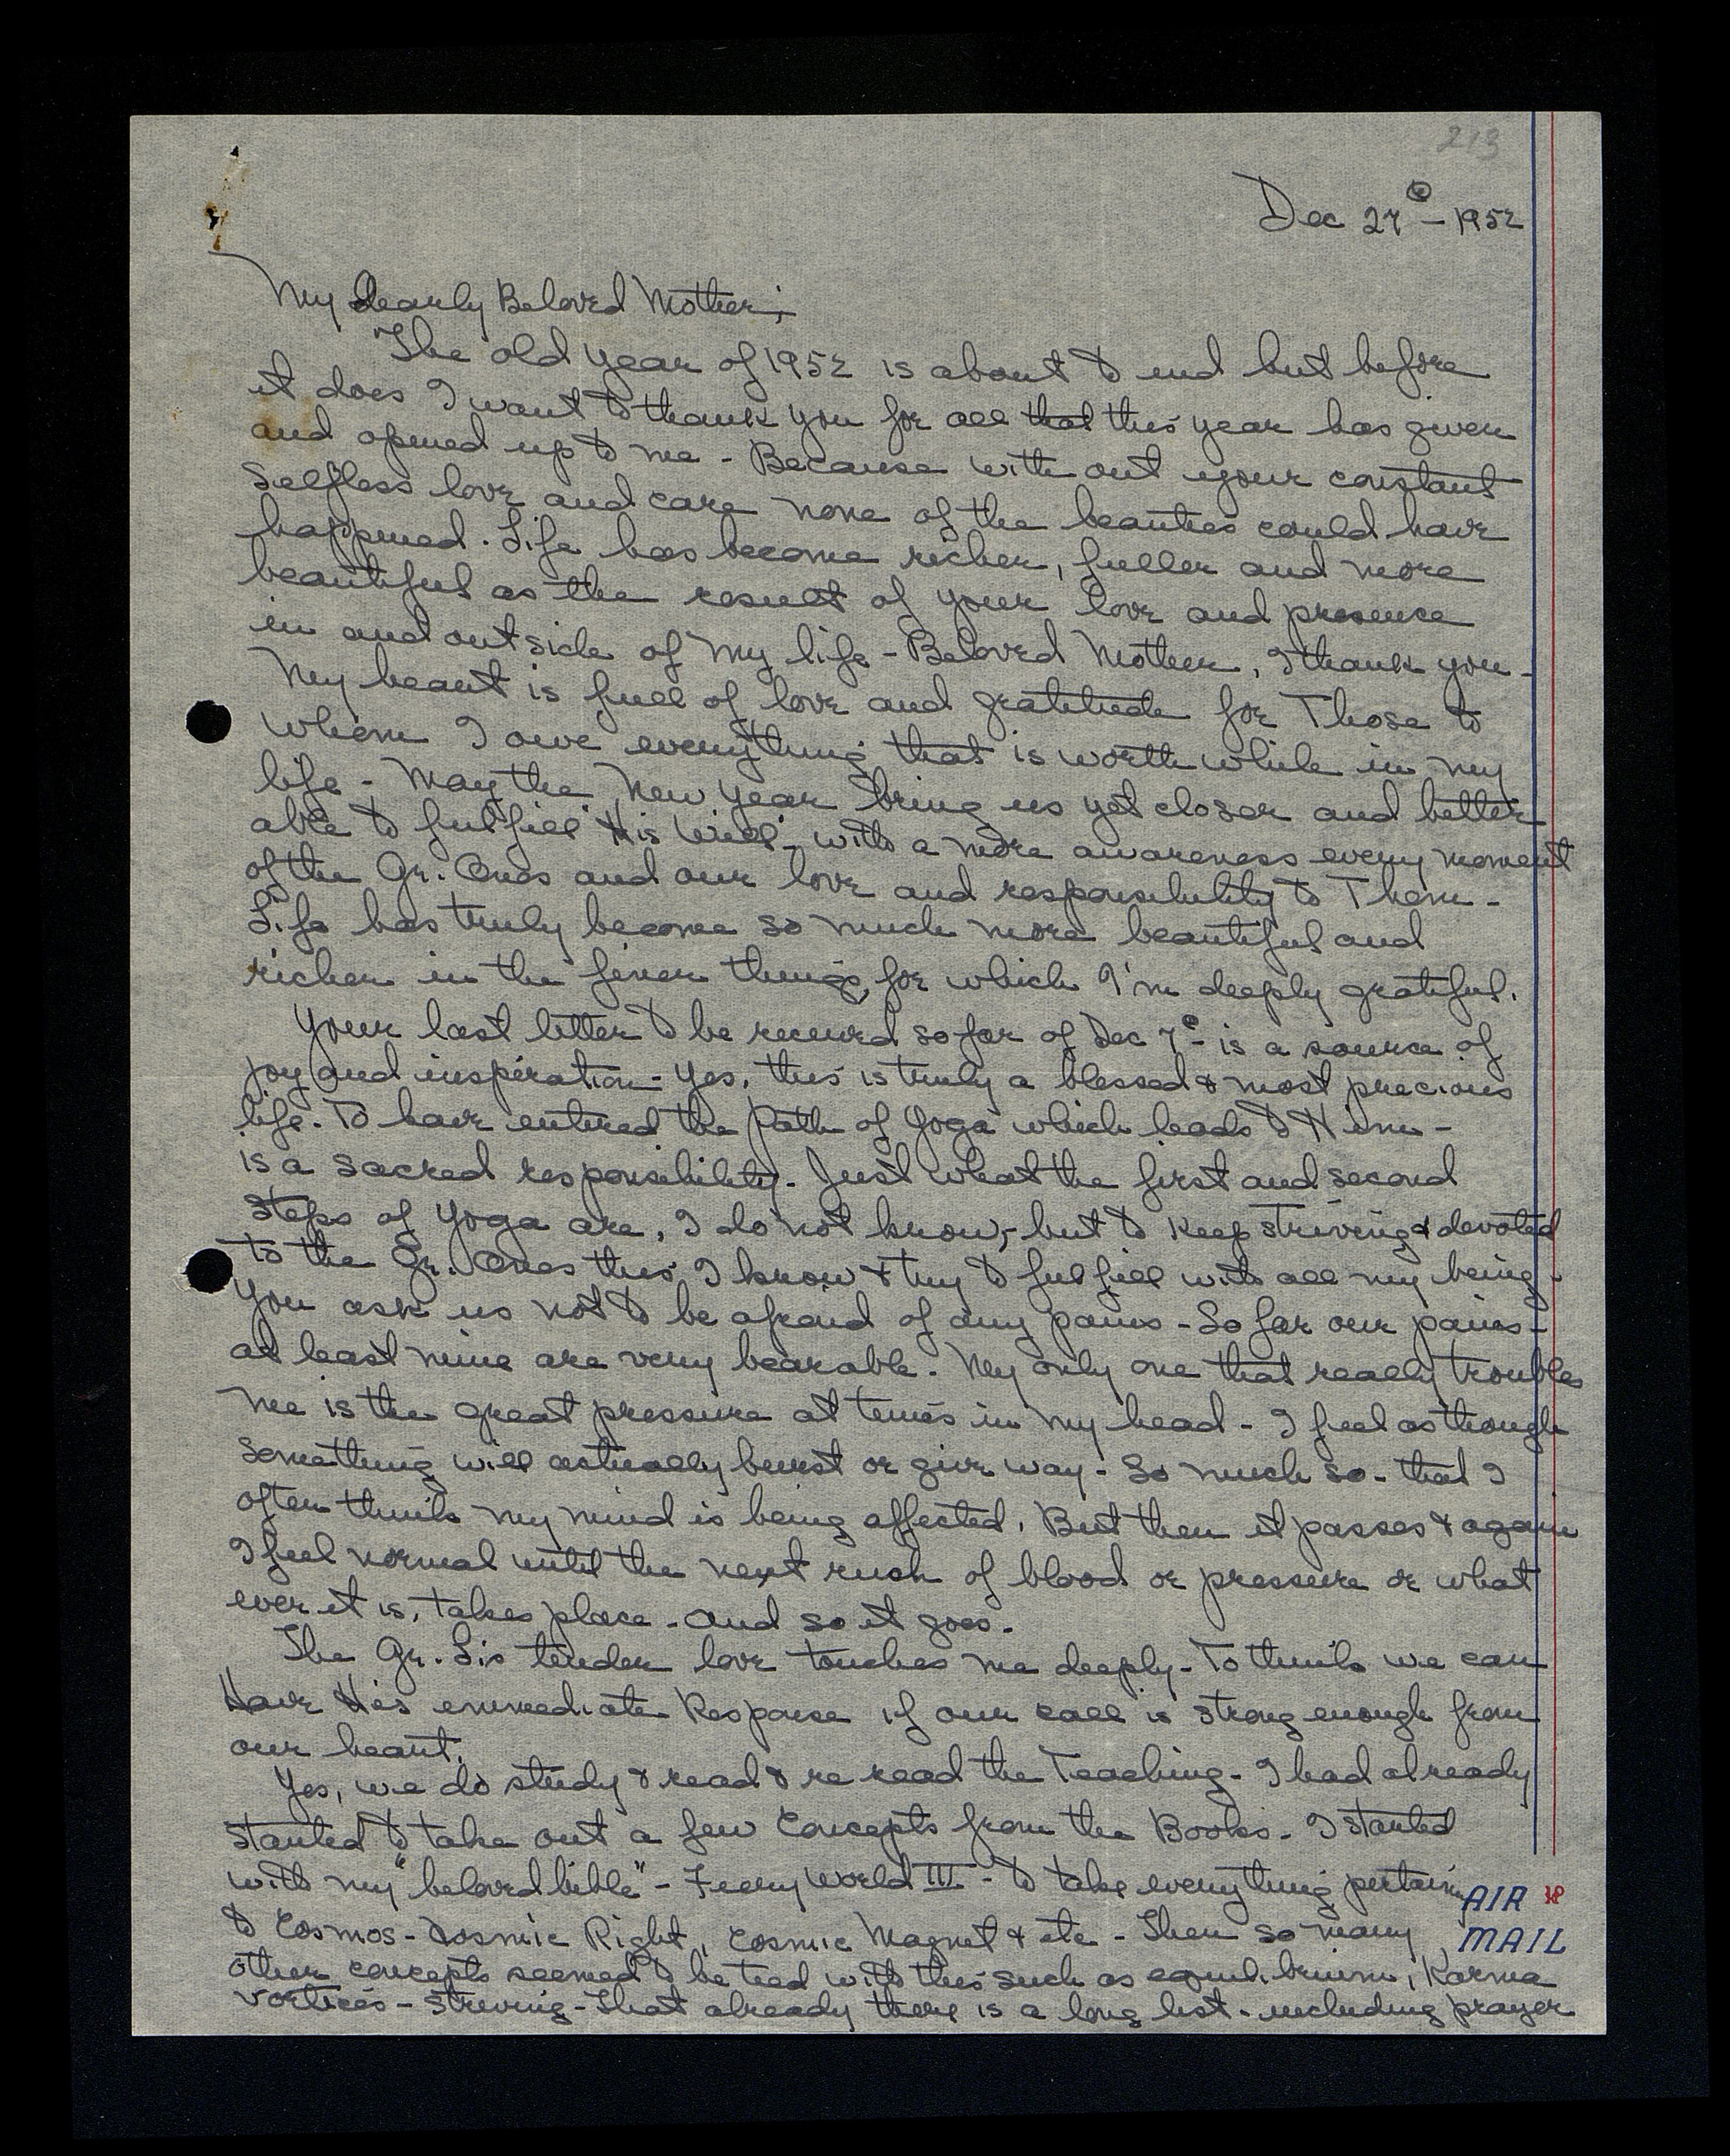 213
Dec 27th - 1952
My dearly Beloved Mother,
The old year of 1952 is about to end but before
it does I want to thank you for all that this year has given
and opened up to me - Because with out your constant
selfless love and care none of the beauties could have
happened. Life has become richer, fuller and more
beautiful as the result of your love and presence
in and outside of my life - Beloved Mother, I thank you -
My heart is full of love and gratitude for Those to
whom I owe everything that is worth while in my
life - May the New Year bring us yet closer and better
able to fulfill His Will - with a more awareness every moment
of the Gr. Ones and our love and responsibility to Them -
Life has truly become so much more beautiful and
richer in the finer things, for which I'm deeply grateful.
Your last letter to be received so far of Dec 7th - is a source of
joy and inspiration - Yes, this is truly a blessed & most precious
life. To have entered the Path of Yoga which leads to Him -
is a sacred responsibility. Just what the first and second
steps of Yoga are, I do not know, - but to keep striving & devoted
to the Gr. Ones this I know & try to fulfill with all my being -
You ask us not to be afraid of any pains - So far our pains -
at least mine are very bearable. My only one that really troubles
me is the great pressure at times in my head - I feel as though
something will actually burst or give way - So much so - that I
often think my mind is being affected. But then it passes & again
I feel normal until the next rush of blood or pressure or what
ever it is, takes place - And so it goes.
The Gr. L.'s tender love touches me deeply - To think we can
Have His immediate Response if our call is strong enough from
our heart.
Yes, we do study & read & re read the Teaching - I had already
started to take out a few Concepts from the Books - I started
with my "beloved bible" - Fiery World III - to take everything pertaining
to Cosmos - Cosmic Right, Cosmic Magnet & etc - Then so many
other concepts seemed to be tied with this such as equilibrium, Karma
vortices - striving - That already there is a long list - including prayer
AIR
MAIL